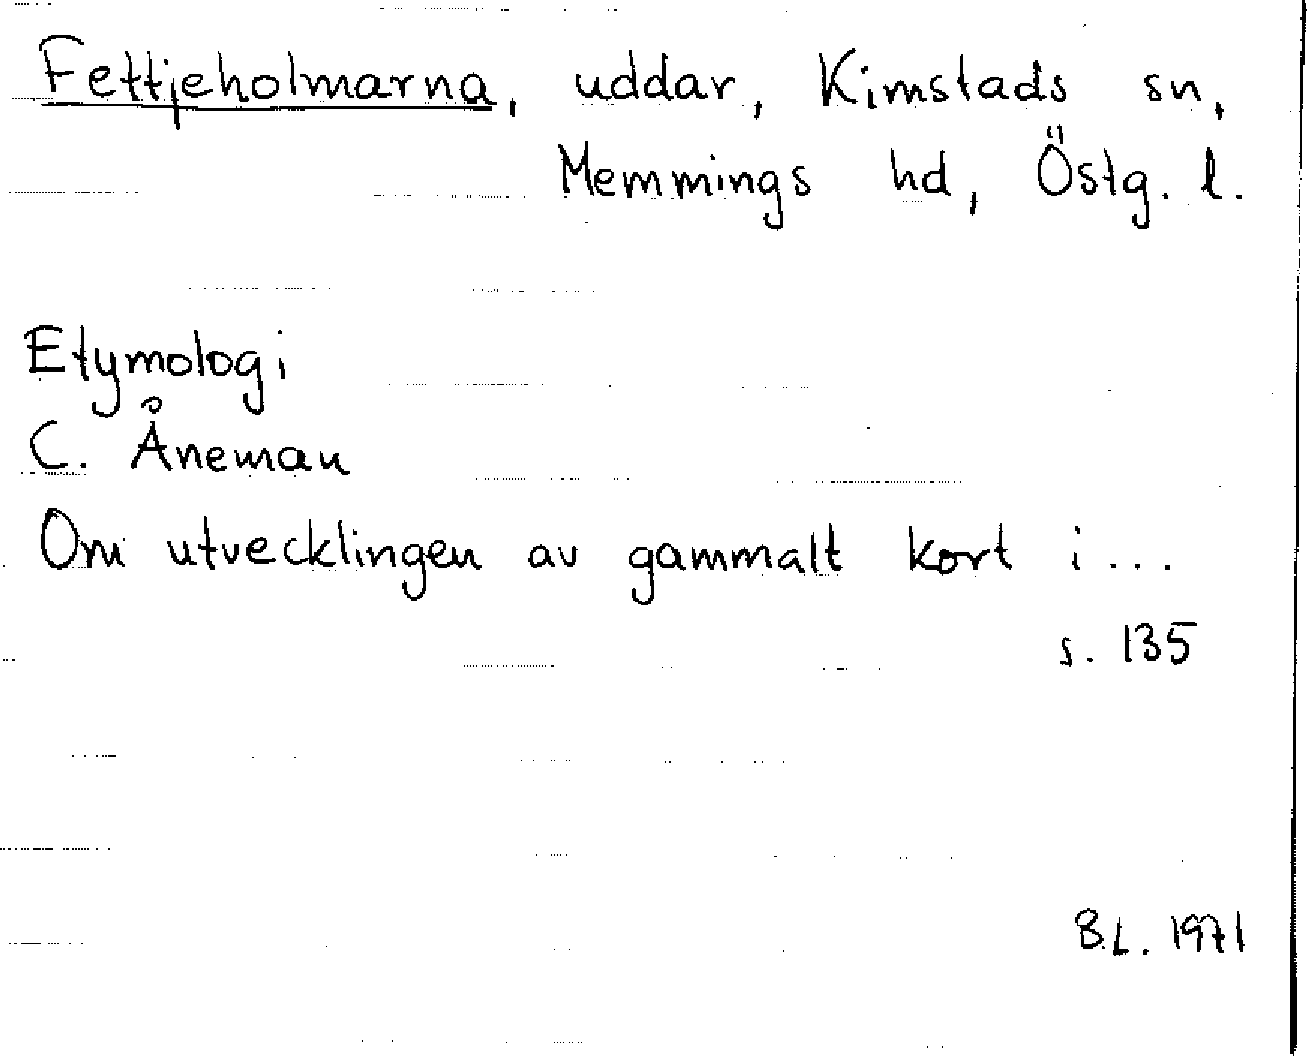 Fettjeholmarna, uddar, Kimstads sn,
Memmings hd, Östg. l.
Etymologi
C. Åneman
Om utvecklingen av gammalt kort i...
s. 135
B.L. 1971